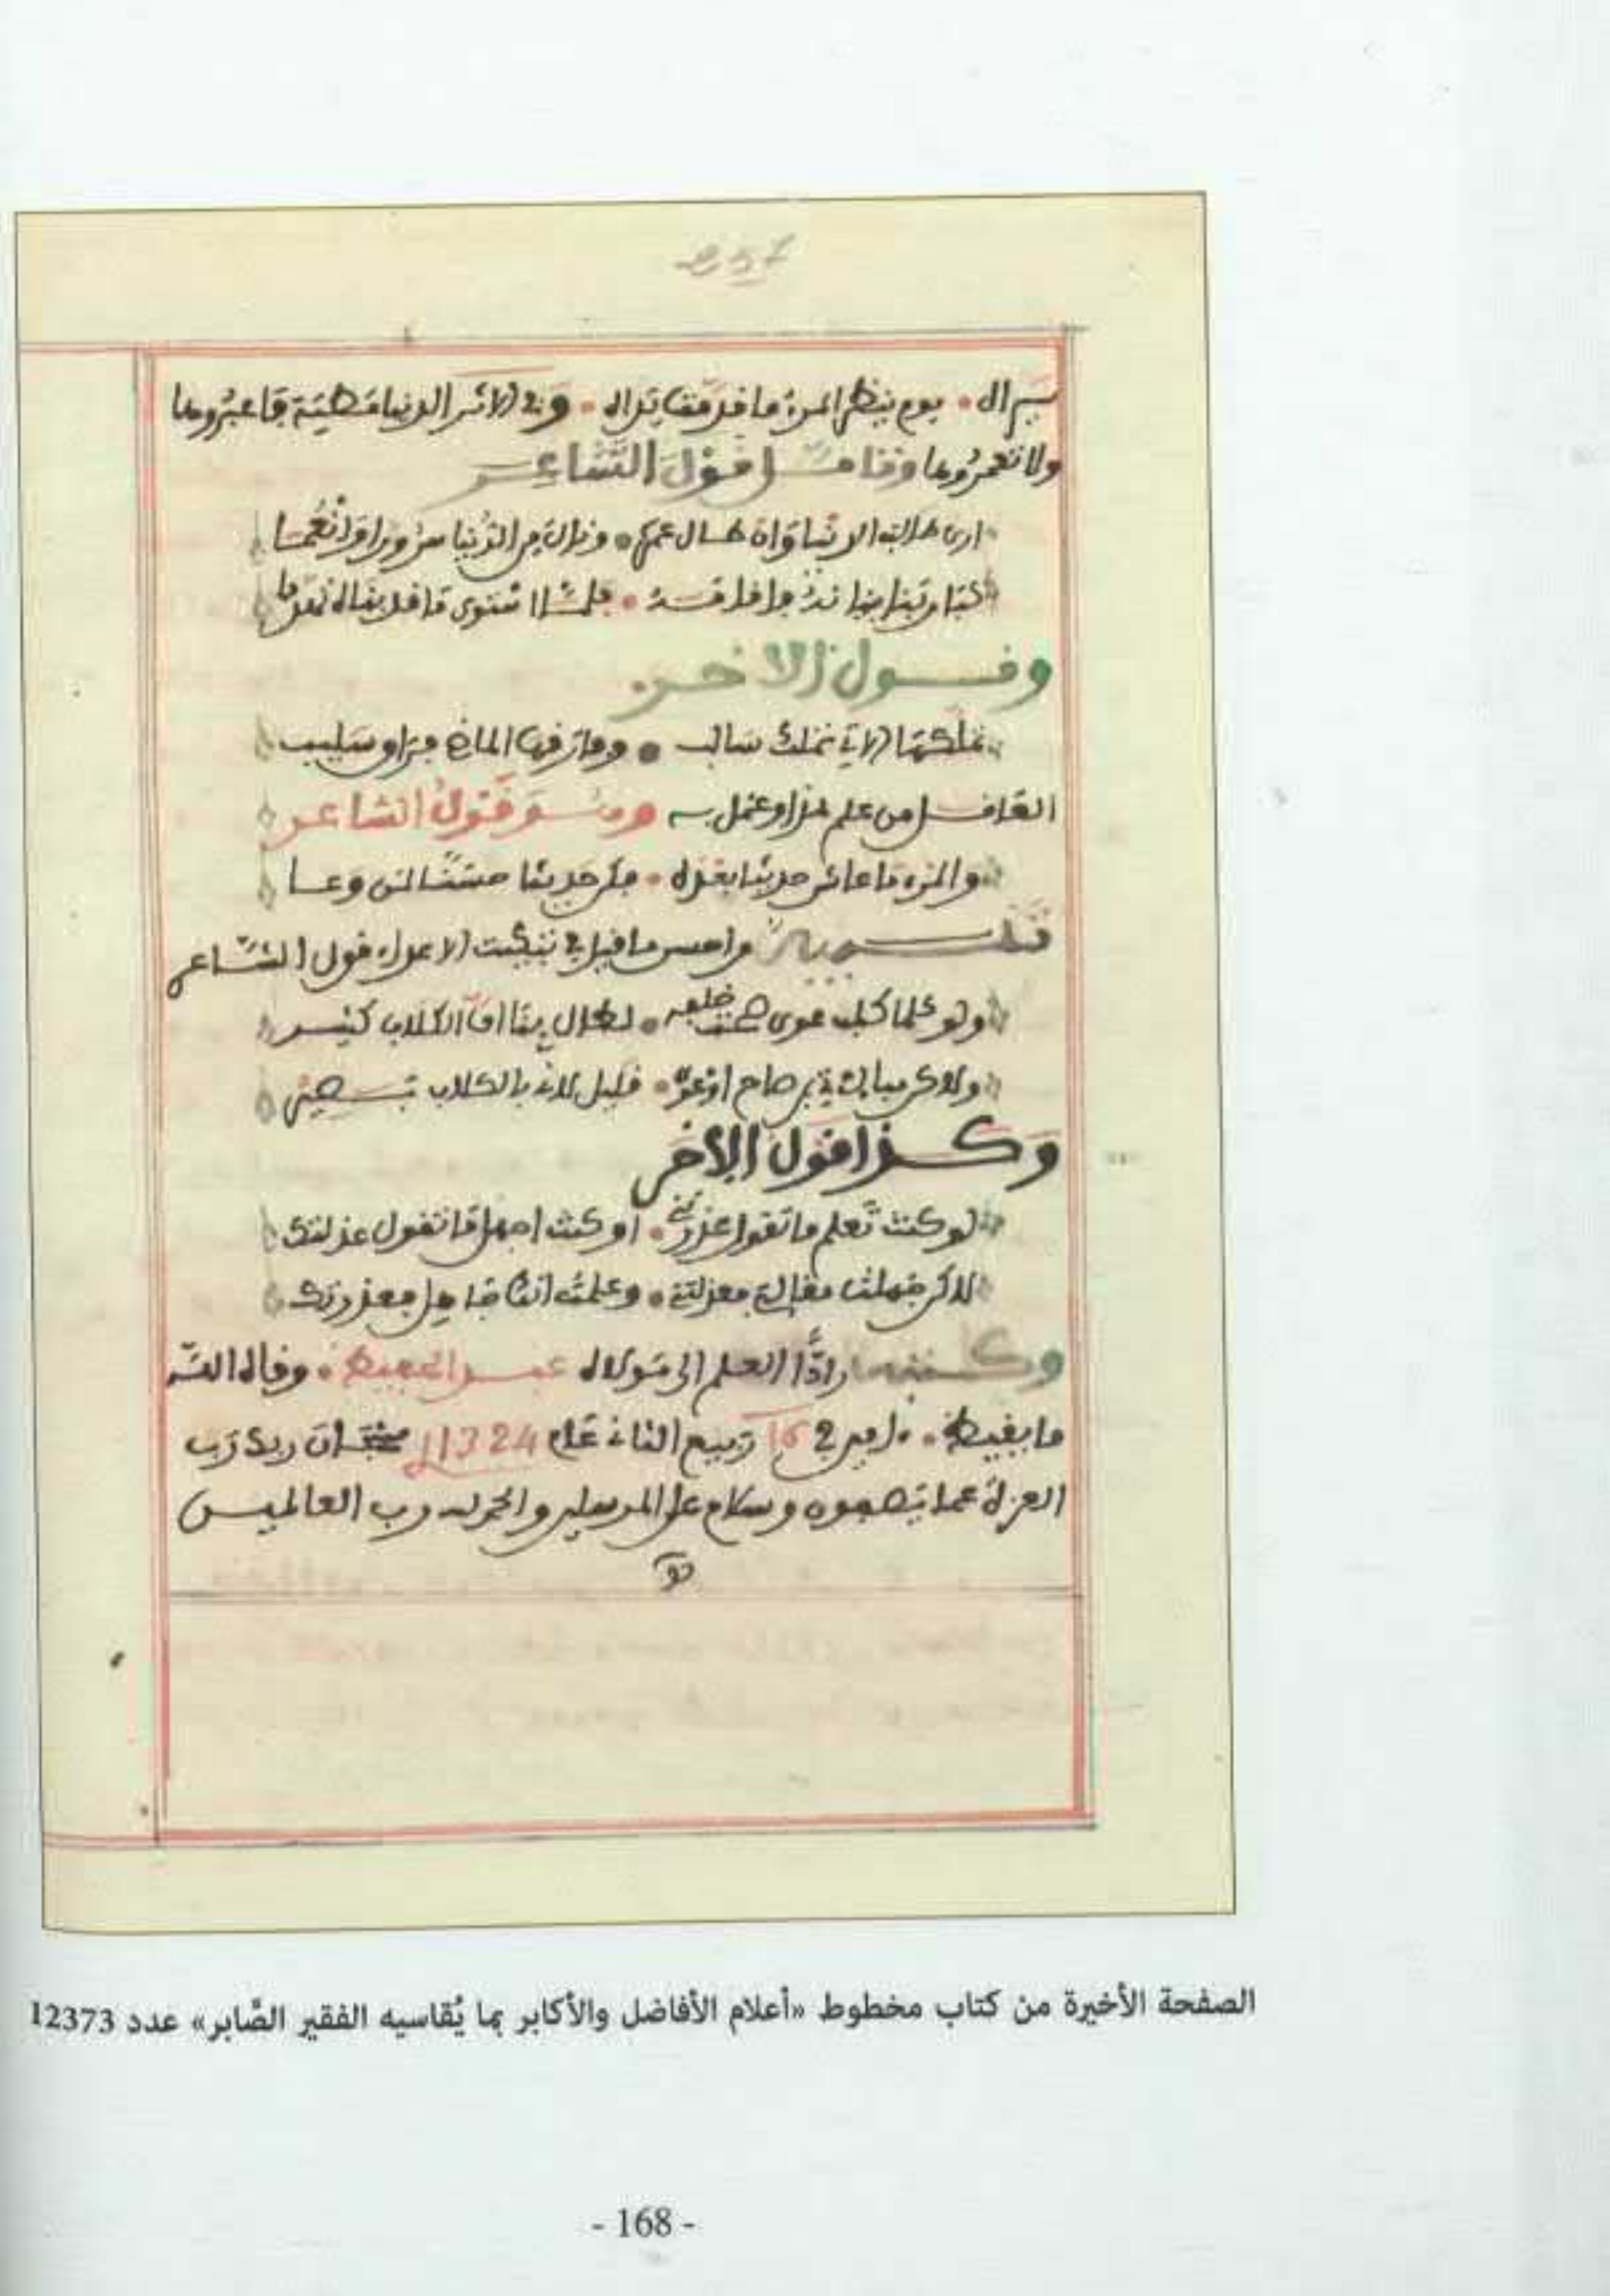 257
يداه • يوم ينظر المرء ما قدمت يداه • وفي الاثر الدنيا مطية فاعبروها
ولا تعمروها وتامل قول الشاعر
ارى طالب الدنيا وان طال عمره • ونال من الدنيا سرورا وانعما
كبان بنا بنيانه فاقامه • فلما استوى ما قد بناه تهدما
وقول الاخر
تملكها الاتي تملك سالب • وفارقها الماضي فراق سليب
العاقل من علم هذا وعمل به وقول الشاعر
والمرء حديثا بعده • فكن حديثا حسنا لمن وعا
تنبيه من احسن ما قيل في تبكيت الاعداء قول الشاعر
ولو كلما كلب عوى ملت نحوه • الكلاب كثير
ولاكن مبالاتي بمن صاح او عوى • قليل لاني بالكلاب بصير
وكذا قول الاخر
لو كنت تعلم ما تقول عذرتني • او كنت اجهل ما تقول عذلتك
لاكن جهلت مقالتي فعذلتني • وعلمت انك جاهل فعذرتك
وكتبه رادا العلم الى مولاه عبد الحفيظ • وقاه الله
ما يغيظ • امين في 16 ربيع الثاني عام 1324 سبحان ربك رب
العزة عما يصفون وسلام على المرسلين والحمد لله رب العالمين
الصفحة الأخيرة من كتاب مخطوط «أعلام الأفاضل والأكابر بما يُقاسيه الفقير الصَّابر» عدد 12373
- 168 -